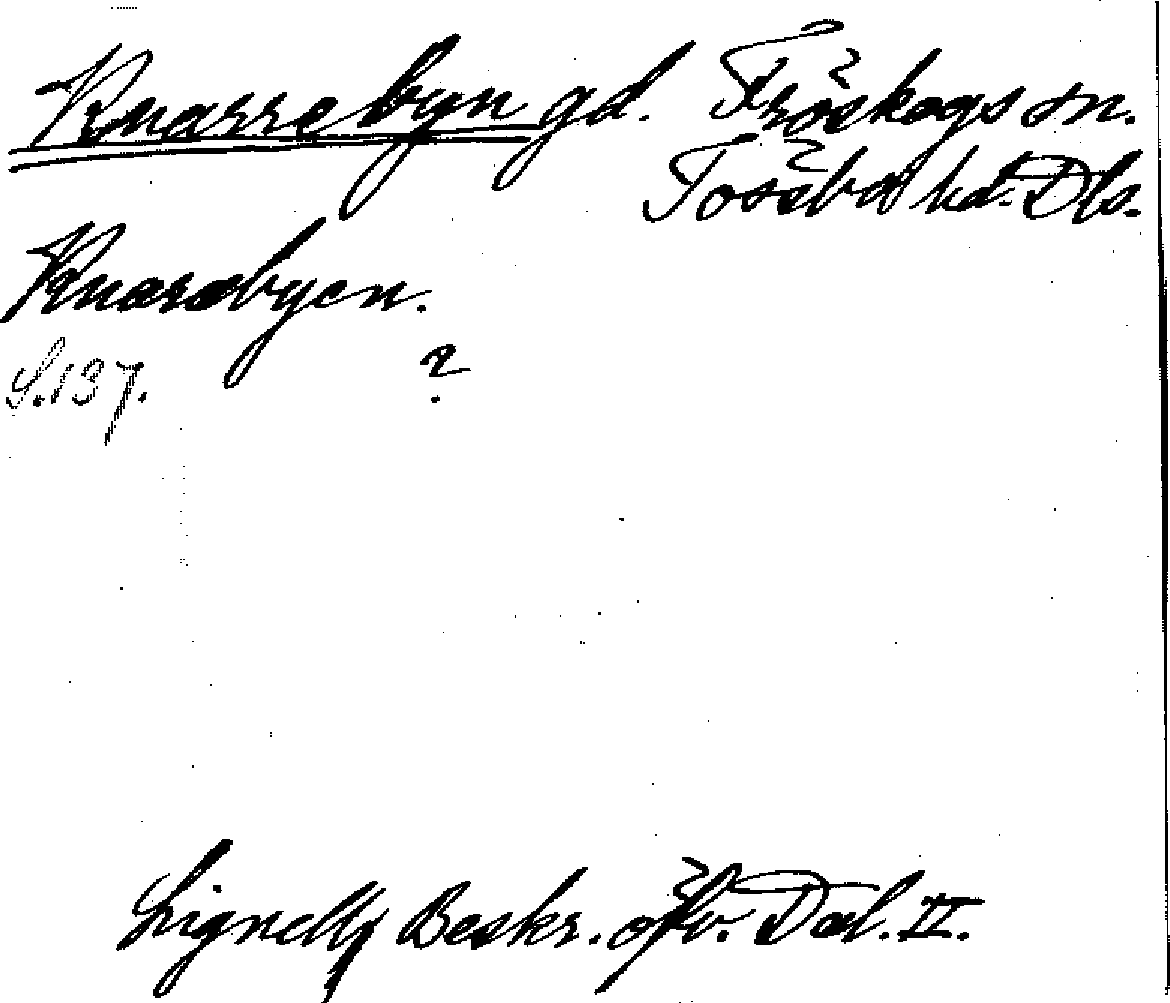 Knarrebyn gd. Fröskogs sn.
Tössbo hd. Dls.
Knarebyen.
S. 137. ?
Lignell, Beskr. öfv. Dal. II.